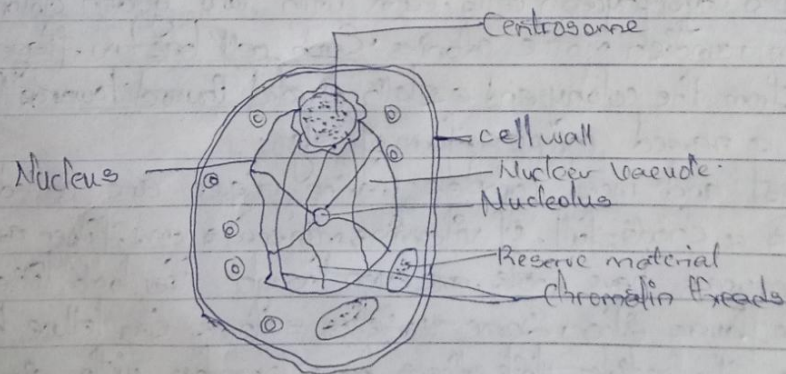 Centrosome
cell wall
Nucleus
Nuclear vacuole.
Nucleolus
Reserve material
Chromatin threads